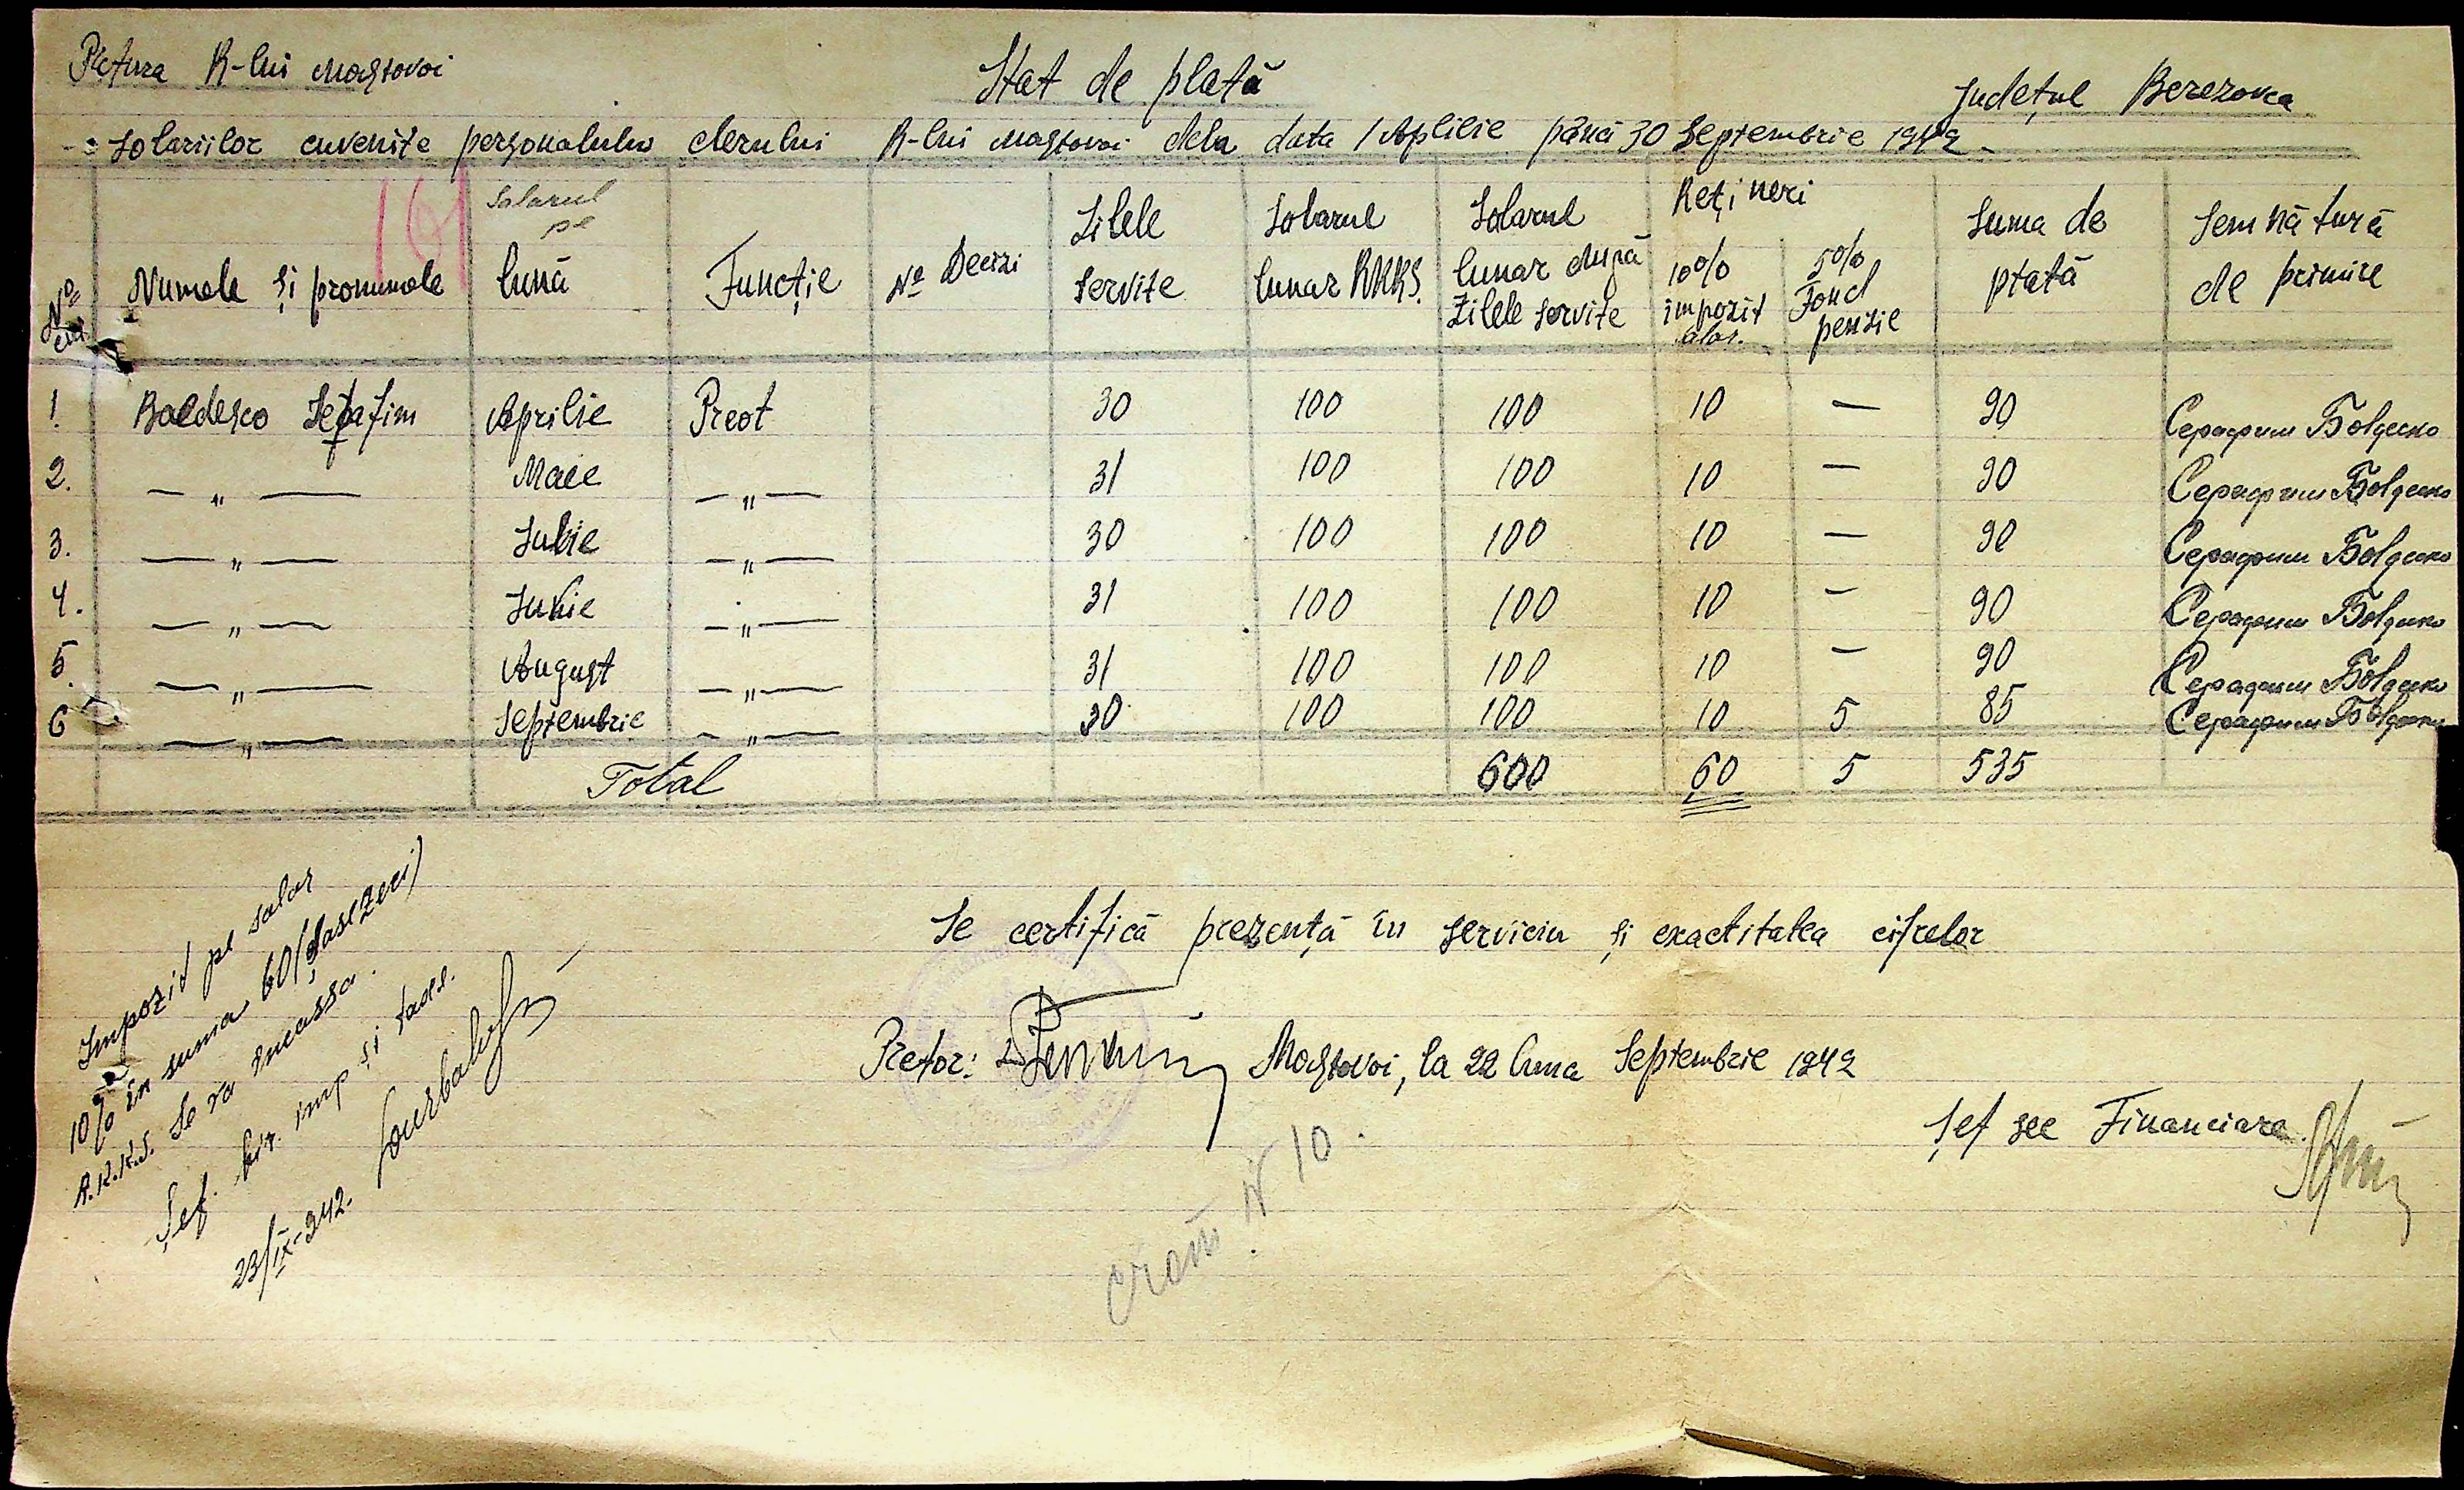 Pretura R-lui Mostovoi
Stat de plată
Județul Berezovca
Solariilor cuvenite personalului clerului R-lui Mostovoi dela data 1 Aplilie până 30 Septembrie 1942
161
No crt | Numele și pronumele | Salarul pe lună | Funcție | No Decizi | Zilele servite | Solarul lunar RKKS. | Solarul lunar după zilele servite | Rețineri 10% impozit salar. | 5% Fond pensie | Suma de plată | Semnătură de primire
1. Boldesco Serafim Aprilie Preot 30 100 100 10 — 90 Серафим Болдеско
2. — " — Maie — " — 31 100 100 10 — 90 Серафим Болдеско
3. — " — Iulie — " — 30 100 100 10 — 90 Серафим Болдеско
4. — " — Iunie — " — 31 100 100 10 — 90 Серафим Болдеско
5. — " — August — " — 31 100 100 10 — 90 Серафим Болдеско
6 — " — Septembrie — " — 30 100 100 10 5 85 Серафим Болдеско
Total 600 60 5 535
Impozit pe salar
10% în suma 60 (șasezeci)
R.K.K.S. Se va încassa.
Șef. bir. imp și taxe.
23/IX-942.
Se certifică prezență în serviciu și exactitatea cifrelor
Pretor: Mostovoi, la 22 luna Septembrie 1942
Șef sec Financiara
N 10.